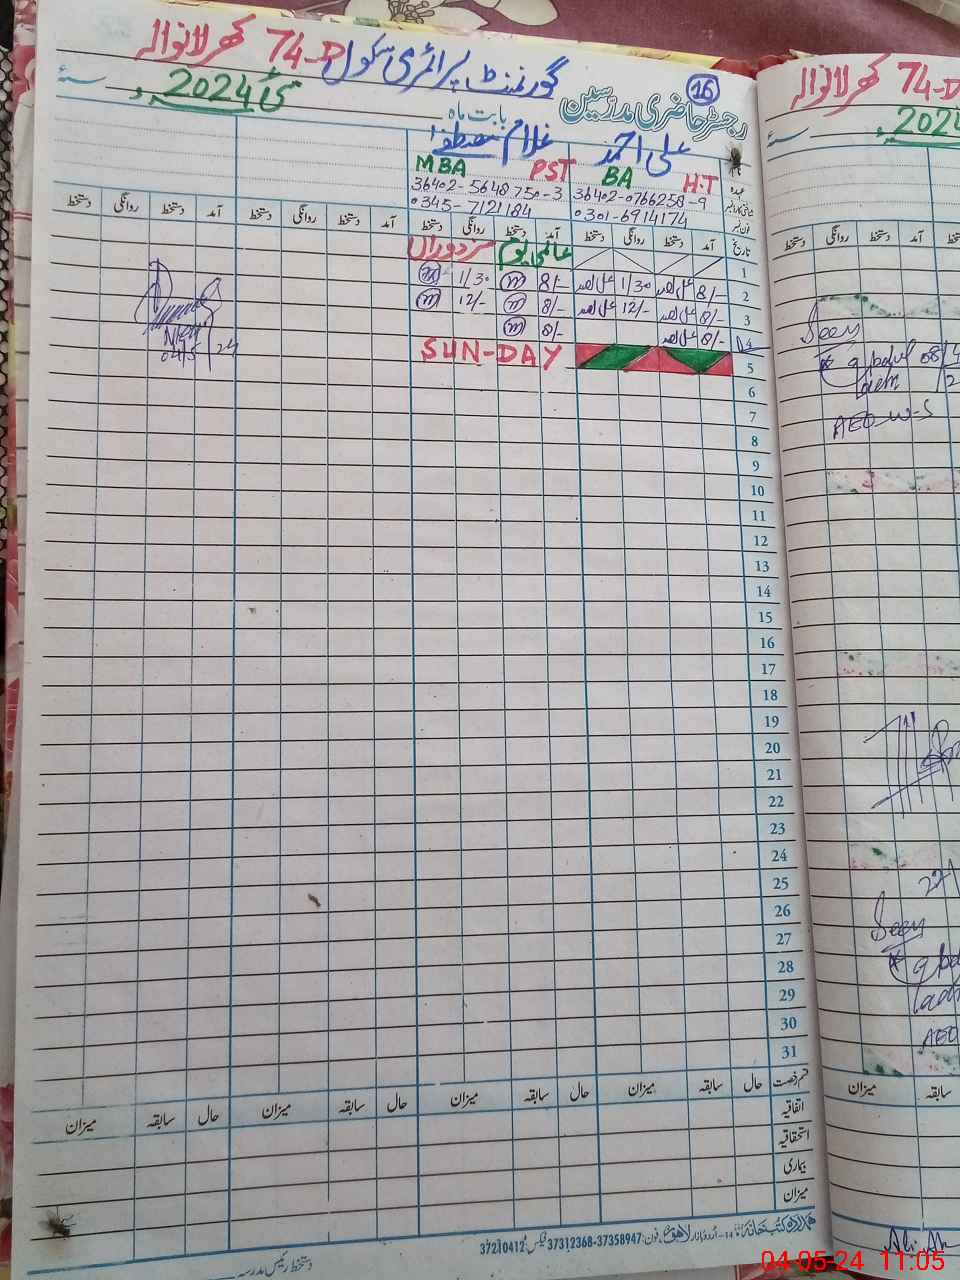 گورنمنٹ پرائمری سکول 74-D کھرلانوالہ
16
رجسٹر حاضری مدرسین بابت ماہ مئی 2024ء سنہ
علی احمد غلام مصطفےٰ
H.T BA PST MBA
36402-0766258-9 36402-5648750-3
0301-6914174 0345-7121184
تاریخ آمد دستخط روانگی دستخط آمد دستخط روانگی دستخط آمد دستخط روانگی دستخط آمد دستخط روانگی دستخط
1 عالمی یوم مزدوراں
2 8/- علی احمد 1/30 علی احمد 8/- m 1/30 m
3 8/- علی احمد 12/- علی احمد 8/- m 12/- m
4 8/- علی احمد 8/- m
04/5/24
5 SUN-DAY
6
7
8
9
10
11
12
13
14
15
16
17
18
19
20
21
22
23
24
25
26
27
28
29
30
31
قسم رخصت حال سابقہ میزان حال سابقہ میزان حال سابقہ میزان حال سابقہ میزان
اتفاقیہ
استحقاقیہ
بیماری
میزان
ہمدرد کتب خانہ 14-اردو بازار لاہور فون: 37358947-37312368 فیکس: 37210412
دستخط رئیس مدرسہ
74-D کھرلانوالہ
سنہ 2024
دستخط روانگی دستخط آمد
Seen
08/4
AEO W-S
Seen
AEO
میزان سابقہ
04-05-24 11:05